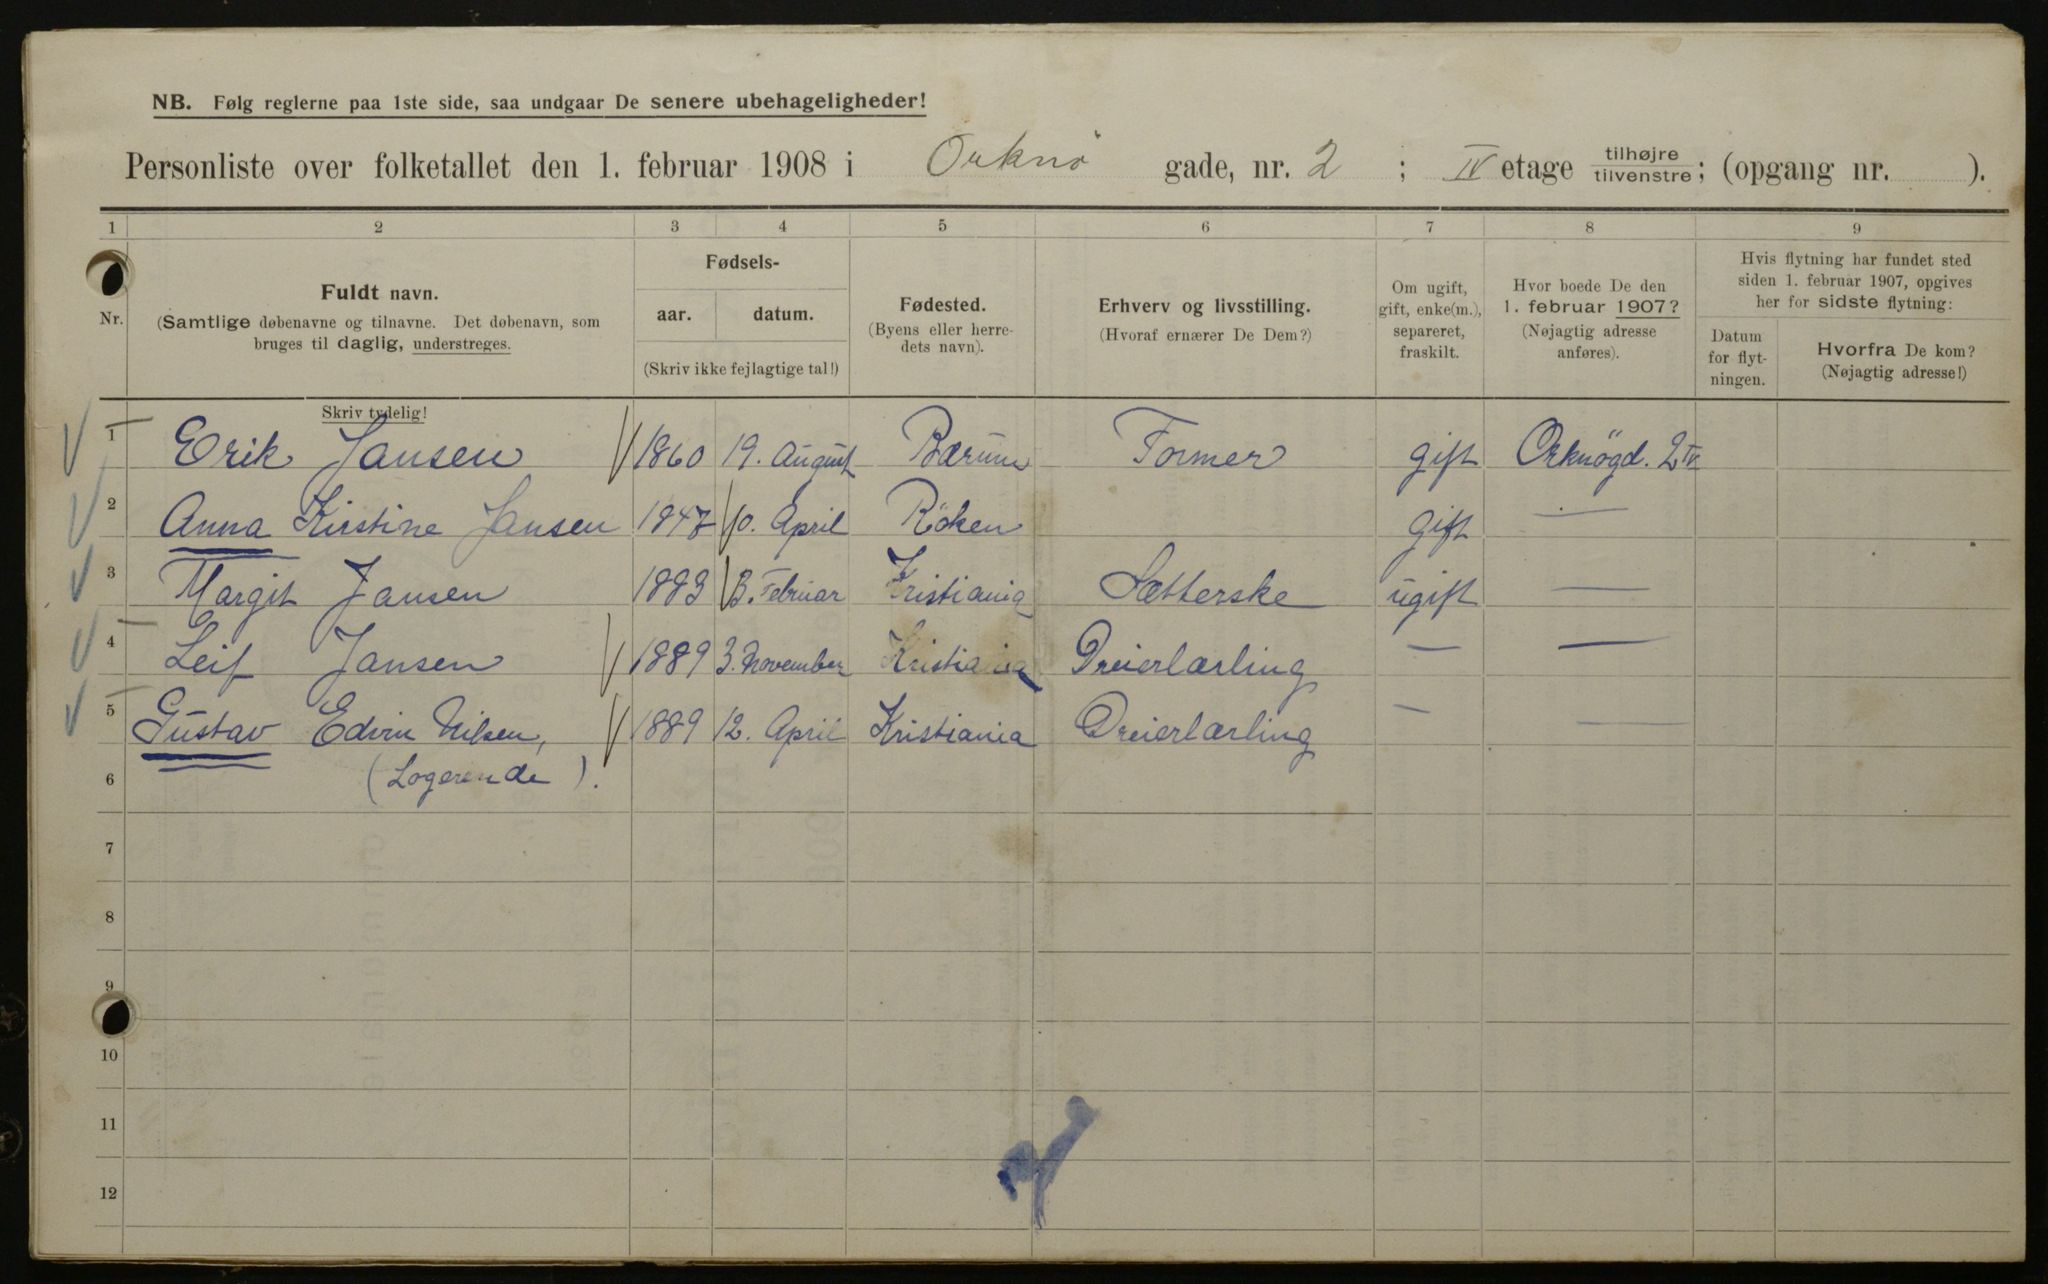 NB. Følg reglerne paa 1ste side, saa undgaar De senere ubehageligheder!
Personliste over folketallet den 1. februar 1908 i Orknø gade, nr. 2 ; IV etage tilhøjre tilvenstre; (opgang nr. ).
1 2 3 4 5 6 7 8 9
Nr.
Fuldt navn.
(Samtlige døbenavne og tilnavne. Det døbenavn, som
bruges til daglig, understreges.
Skriv tydelig!
Fødsels-
aar. datum.
(Skriv ikke fejlagtige tal!)
Fødested.
(Byens eller herre-
dets navn).
Erhverv og livsstilling.
(Hvoraf ernærer De Dem?)
Om ugift,
gift, enke(m.),
separeret,
fraskilt.
Hvor boede De den
1. februar 1907?
(Nøjagtig adresse
anføres).
Hvis flytning har fundet sted
siden 1. februar 1907, opgives
her for sidste flytning:
Datum
for flyt-
ningen.
Hvorfra De kom?
(Nøjagtig adresse!)
1 Erik Jansen 1860 19. August Bærum Former gift Orknögd. 2 IV
2 Anna Kirstine Jansen 1847 10. April Röken gift —
3 Margit Jansen 1883 13. Februar Kristiania Sætterske ugift —
4 Leif Jansen 1889 3. November Kristiania Dreierlærling — —
5 Gustav Edvin Nilsen, 1889 12. April Kristiania Dreierlærling — —
6 (Logerende).
7
8
9
10
11
12